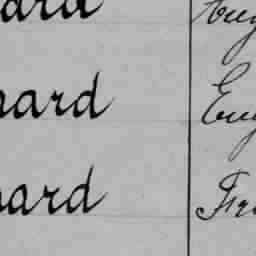 ard Eug
nard Eug
nard Fra